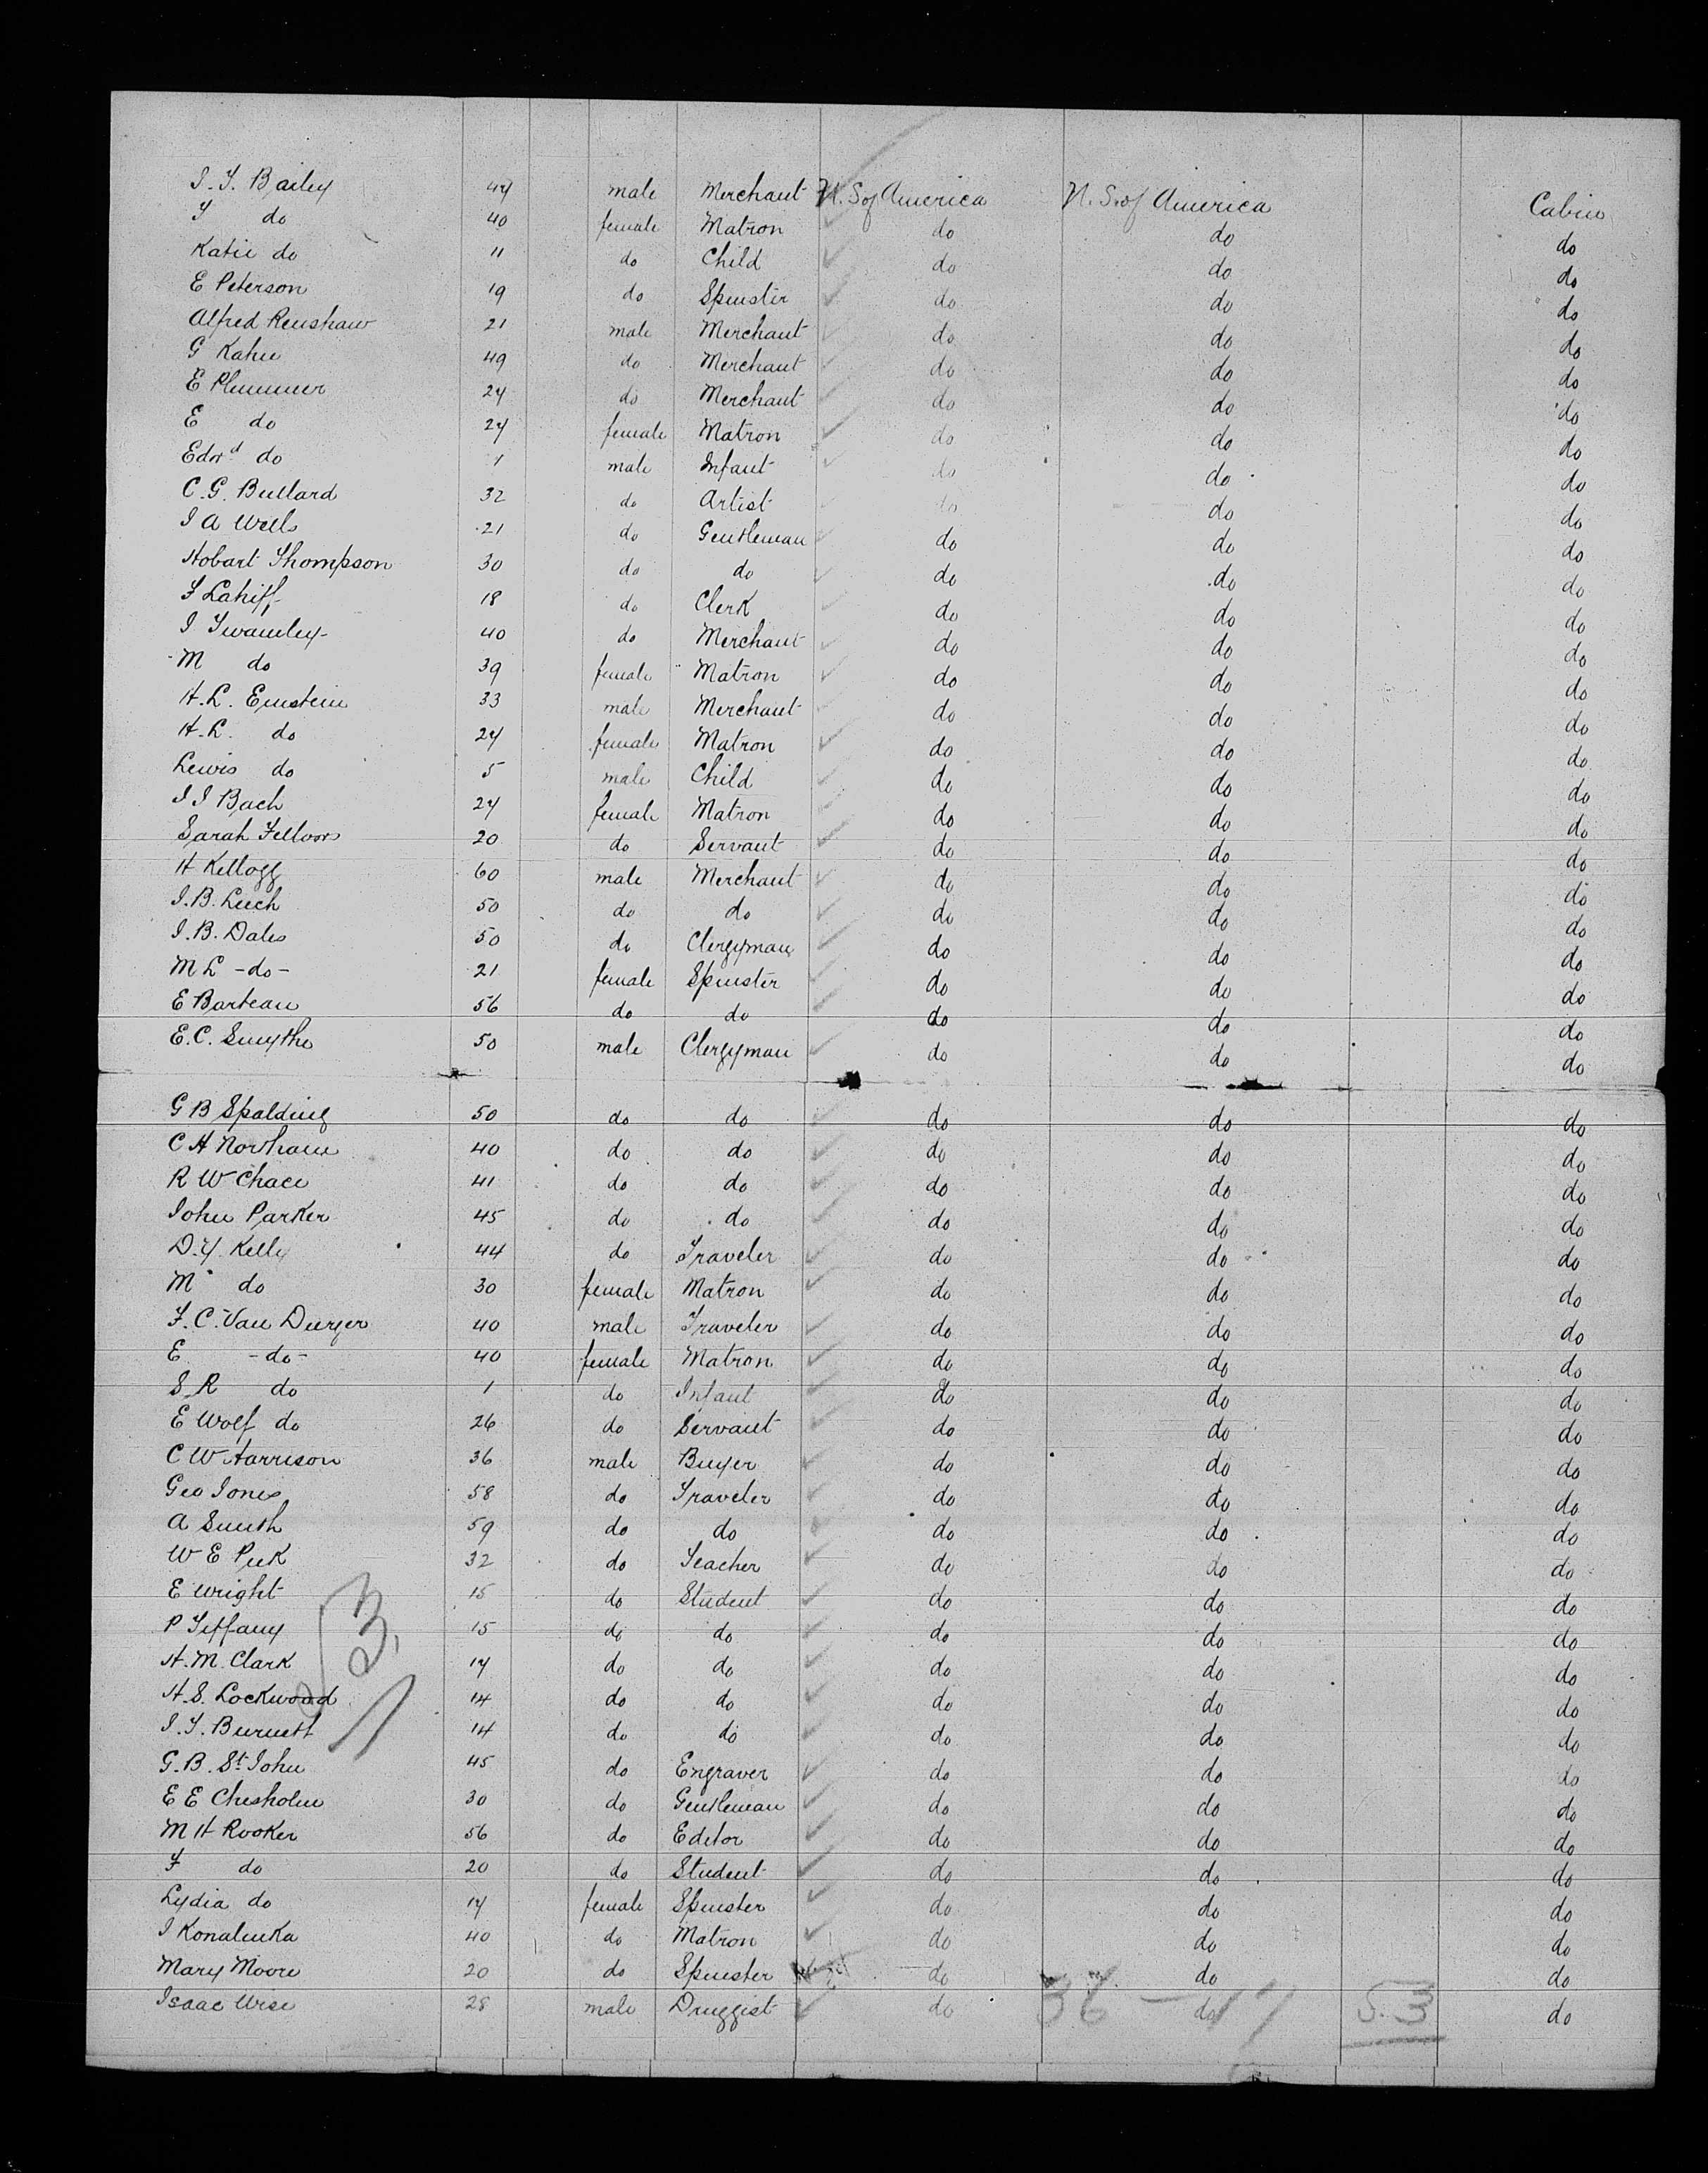 J. T. Bailey 44 male Merchant U. S of America U. S. of America Cabin
T do 40 female Matron do do do
Katie do 11 do Child do do do
E Peterson 19 do Spinster do do do
Alfred Renshaw 21 male Merchant do do do
G Kahn 49 do Merchant do do do
E Plummer 24 do Merchant do do do
E do 24 female Matron do do do
Edwd do 1 male Infant do do do
C. G. Bullard 32 do Artist do do do
J A Wells 21 do Gentleman do do do
Hobart Thompson 30 do do do do do
F Lahiff 18 do Clerk do do do
J Twamley 40 do Merchant do do do
M do 39 female Matron do do do
H. L. Einstein 33 male Merchant do do do
H. L. do 24 female Matron do do do
Lewis do 5 male Child do do do
J J Bach 24 female Matron do do do
Sarah Fellows 20 do Servant do do do
H Kellogg 60 male Merchant do do do
J. B. Leech 50 do do do do do
J. B. Dales 50 do Clergyman do do do
M L - do - 21 female Spinster do do do
E Barteau 56 do do do do do
E. C. Smythe 50 male Clergyman do do do
G B Spalding 50 do do do do do
C H Northam 40 do do do do do
R W Chace 41 do do do do do
John Parker 45 do do do do do
D. Y. Kelly 44 do Traveler do do do
M do 30 female Matron do do do
F. C. Van Duzer 40 male Traveler do do do
E - do - 40 female Matron do do do
S R do 1 do Infant do do do
E Wolf do 26 do Servant do do do
C W Harrison 36 male Buyer do do do
Geo Jones 58 do Traveler do do do
A Smith 59 do do do do do
W E Peek 32 do Teacher do do do
E Wright 15 do Student do do do
P Tiffany 15 do do do do do
H. M. Clark 14 do do do do do
H. S. Lockwood 14 do do do do do
J. T. Burnett 14 do do do do do
G. B. St. John 45 do Engraver do do do
E E Chisholm 30 do Gentleman do do do
M H Rooker 56 do Editor do do do
F do 20 do Student do do do
Lydia do 14 female Spinster do do do
J Konalinka 40 do Matron do do do
Mary Moore 20 do Spinster do do do
Isaac Wise 28 male Druggist do do do
36 - 17 53